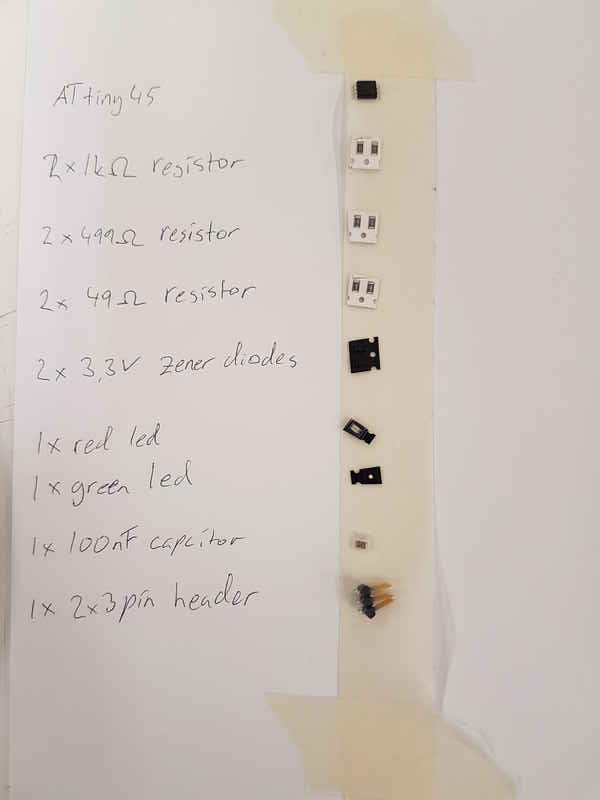 ATtiny45
2x1kΩ resistor
2x499Ω resistor
2x 49Ω resistor
2x 3,3V zener diodes
1x red led
1x green led
1x 100nF capcitor
1x 2x3pin header